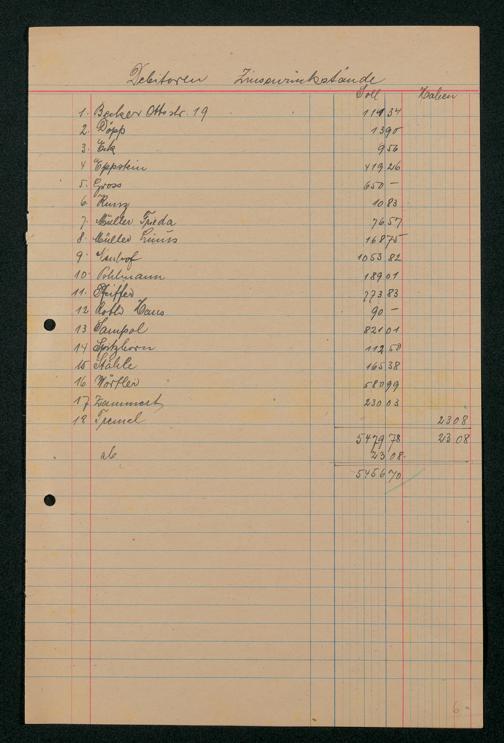 Debitoren Zinsrückstände
Soll Haben
1. Becker Ottostr. 19 111 34
2. Dopp 13 90
3. Eck 9 56
4 Eppstein 419 26
5. Gross 650 –
6. Kurz 10 83
7. Müller Frieda 76 57
8. Müller Linus 168 75
9. 1053 82
10. Pohlmann 189 01
11. Pfeiffer 773 83
12 Roth Hans 90 –
13 Sampol 821 01
14 Spitzhorn 112 50
15 Stähle 165 38
16 Wörtler 580 99
17. Zammert 230 03
18 Tremel 23 08
5479 78 23 08
ab 23 08.
5456 70
6